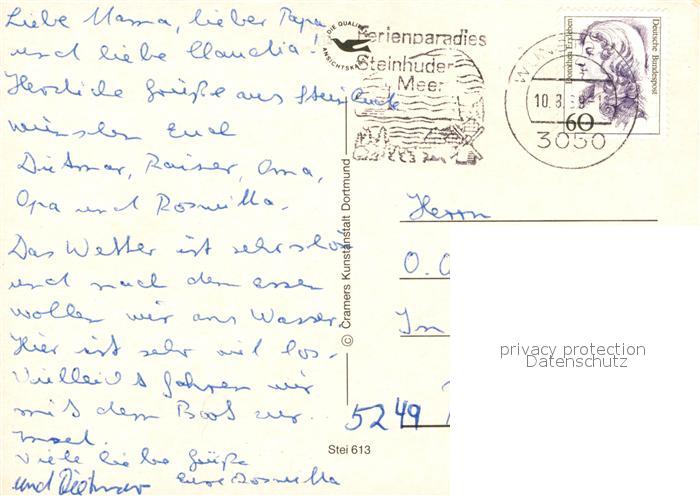 Liebe Mama, lieber Papa
und liebe Claudia!
Herzliche Grüße aus Steinhude
wünschen Euch
Dietmar, Rainer, Oma,
Opa und Roswitha.
Das Wetter ist sehr schön
und nach dem essen
wollen wir ans Wasser.
Hier ist sehr viel los.
Vielleicht fahren wir
mit dem Boot zur
Insel.
Viele liebe Grüße
und Dietmar Eure Roswitha
DIE QUALITÄTS
ANSICHTSKARTE
Ferienparadies
Steinhuder
Meer
10.8.89
3050
Dorothea Erxleben
Deutsche Bundespost
60
© Cramers Kunstanstalt Dortmund
Stei 613
Herrn
O.
In
5249
privacy protection
Datenschutz